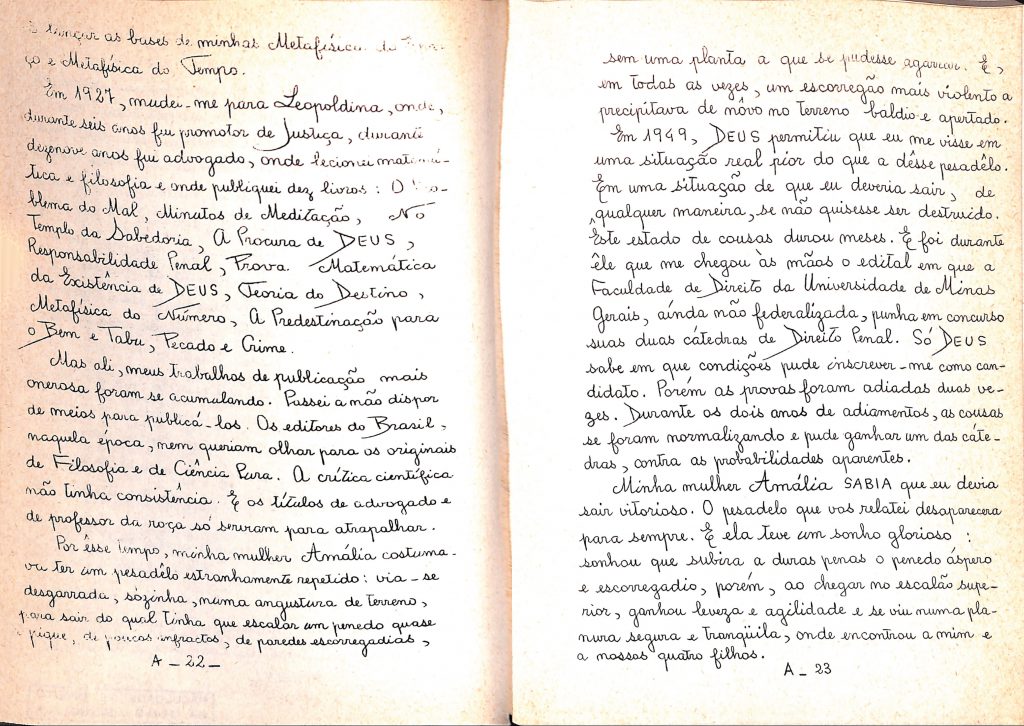 e lançar as bases de minhas Metafísica do Espa-
ço e Metafísica do Tempo.
Em 1927, mudei-me para Leopoldina, onde,
durante seis anos fui promotor de Justiça, durante
dezenove anos fui advogado, onde lecionei matemá-
tica e filosofia e onde publiquei dez livros: O Pro-
blema do Mal, Minutos de Meditação, No
Templo da Sabedoria, A Procura de DEUS,
Responsabilidade Penal, Prova Matemática
da Existência de DEUS, Teoria do Destino,
Metafísica do Número, A Predestinação para
o Bem e Tabu, Pecado e Crime.
Mas ali, meus trabalhos de publicação mais
onerosa foram se acumulando. Passei a não dispor
de meios para publicá-los. Os editores do Brasil,
naquela época, nem queriam olhar para os originais
de Filosofia e de Ciência Pura. A crítica científica
não tinha consistência. E os títulos de advogado e
de professor da roça só serviram para atrapalhar.
Por êsse tempo, minha mulher Amália costuma-
va ter um pesadêlo estranhamente repetido: via-se
desgarrada, sòzinha, numa angustura de terreno,
para sair do qual tinha que escalar um penedo quase
a pique, de poucos infractos, de paredes escorregadias,
A-22-
sem uma planta a que se pudesse agarrar. E,
em todas as vezes, um escorregão mais violento a
precipitava de nôvo no terreno baldio e apertado.
Em 1949, DEUS permitiu que eu me visse em
uma situação real pior do que a dêsse pesadêlo.
Em uma situação de que eu deveria sair, de
qualquer maneira, se não quisesse ser destruído.
Este estado de cousas durou meses. E foi durante
êle que me chegou às mãos o edital em que a
Faculdade de Direito da Universidade de Minas
Gerais, ainda não federalizada, punha em concurso
suas duas cátedras de Direito Penal. Só DEUS
sabe em que condições pude inscrever-me como can-
didato. Porém as provas foram adiadas duas ve-
zes. Durante os dois anos de adiamentos, as cousas
se foram normalizando e pude ganhar um das cáte-
dras, contra as probabilidades aparentes.
Minha mulher Amália SABIA que eu devia
sair vitorioso. O pesadelo que vos relatei desaparecera
para sempre. E ela teve um sonho glorioso:
sonhou que subira a duras penas o penedo áspero
e escorregadio, porém, ao chegar no escalão supe-
rior, ganhou leveza e agilidade e se viu numa pla-
nura segura e tranqüila, onde encontrou a mim e
a nossos quatro filhos.
A-23